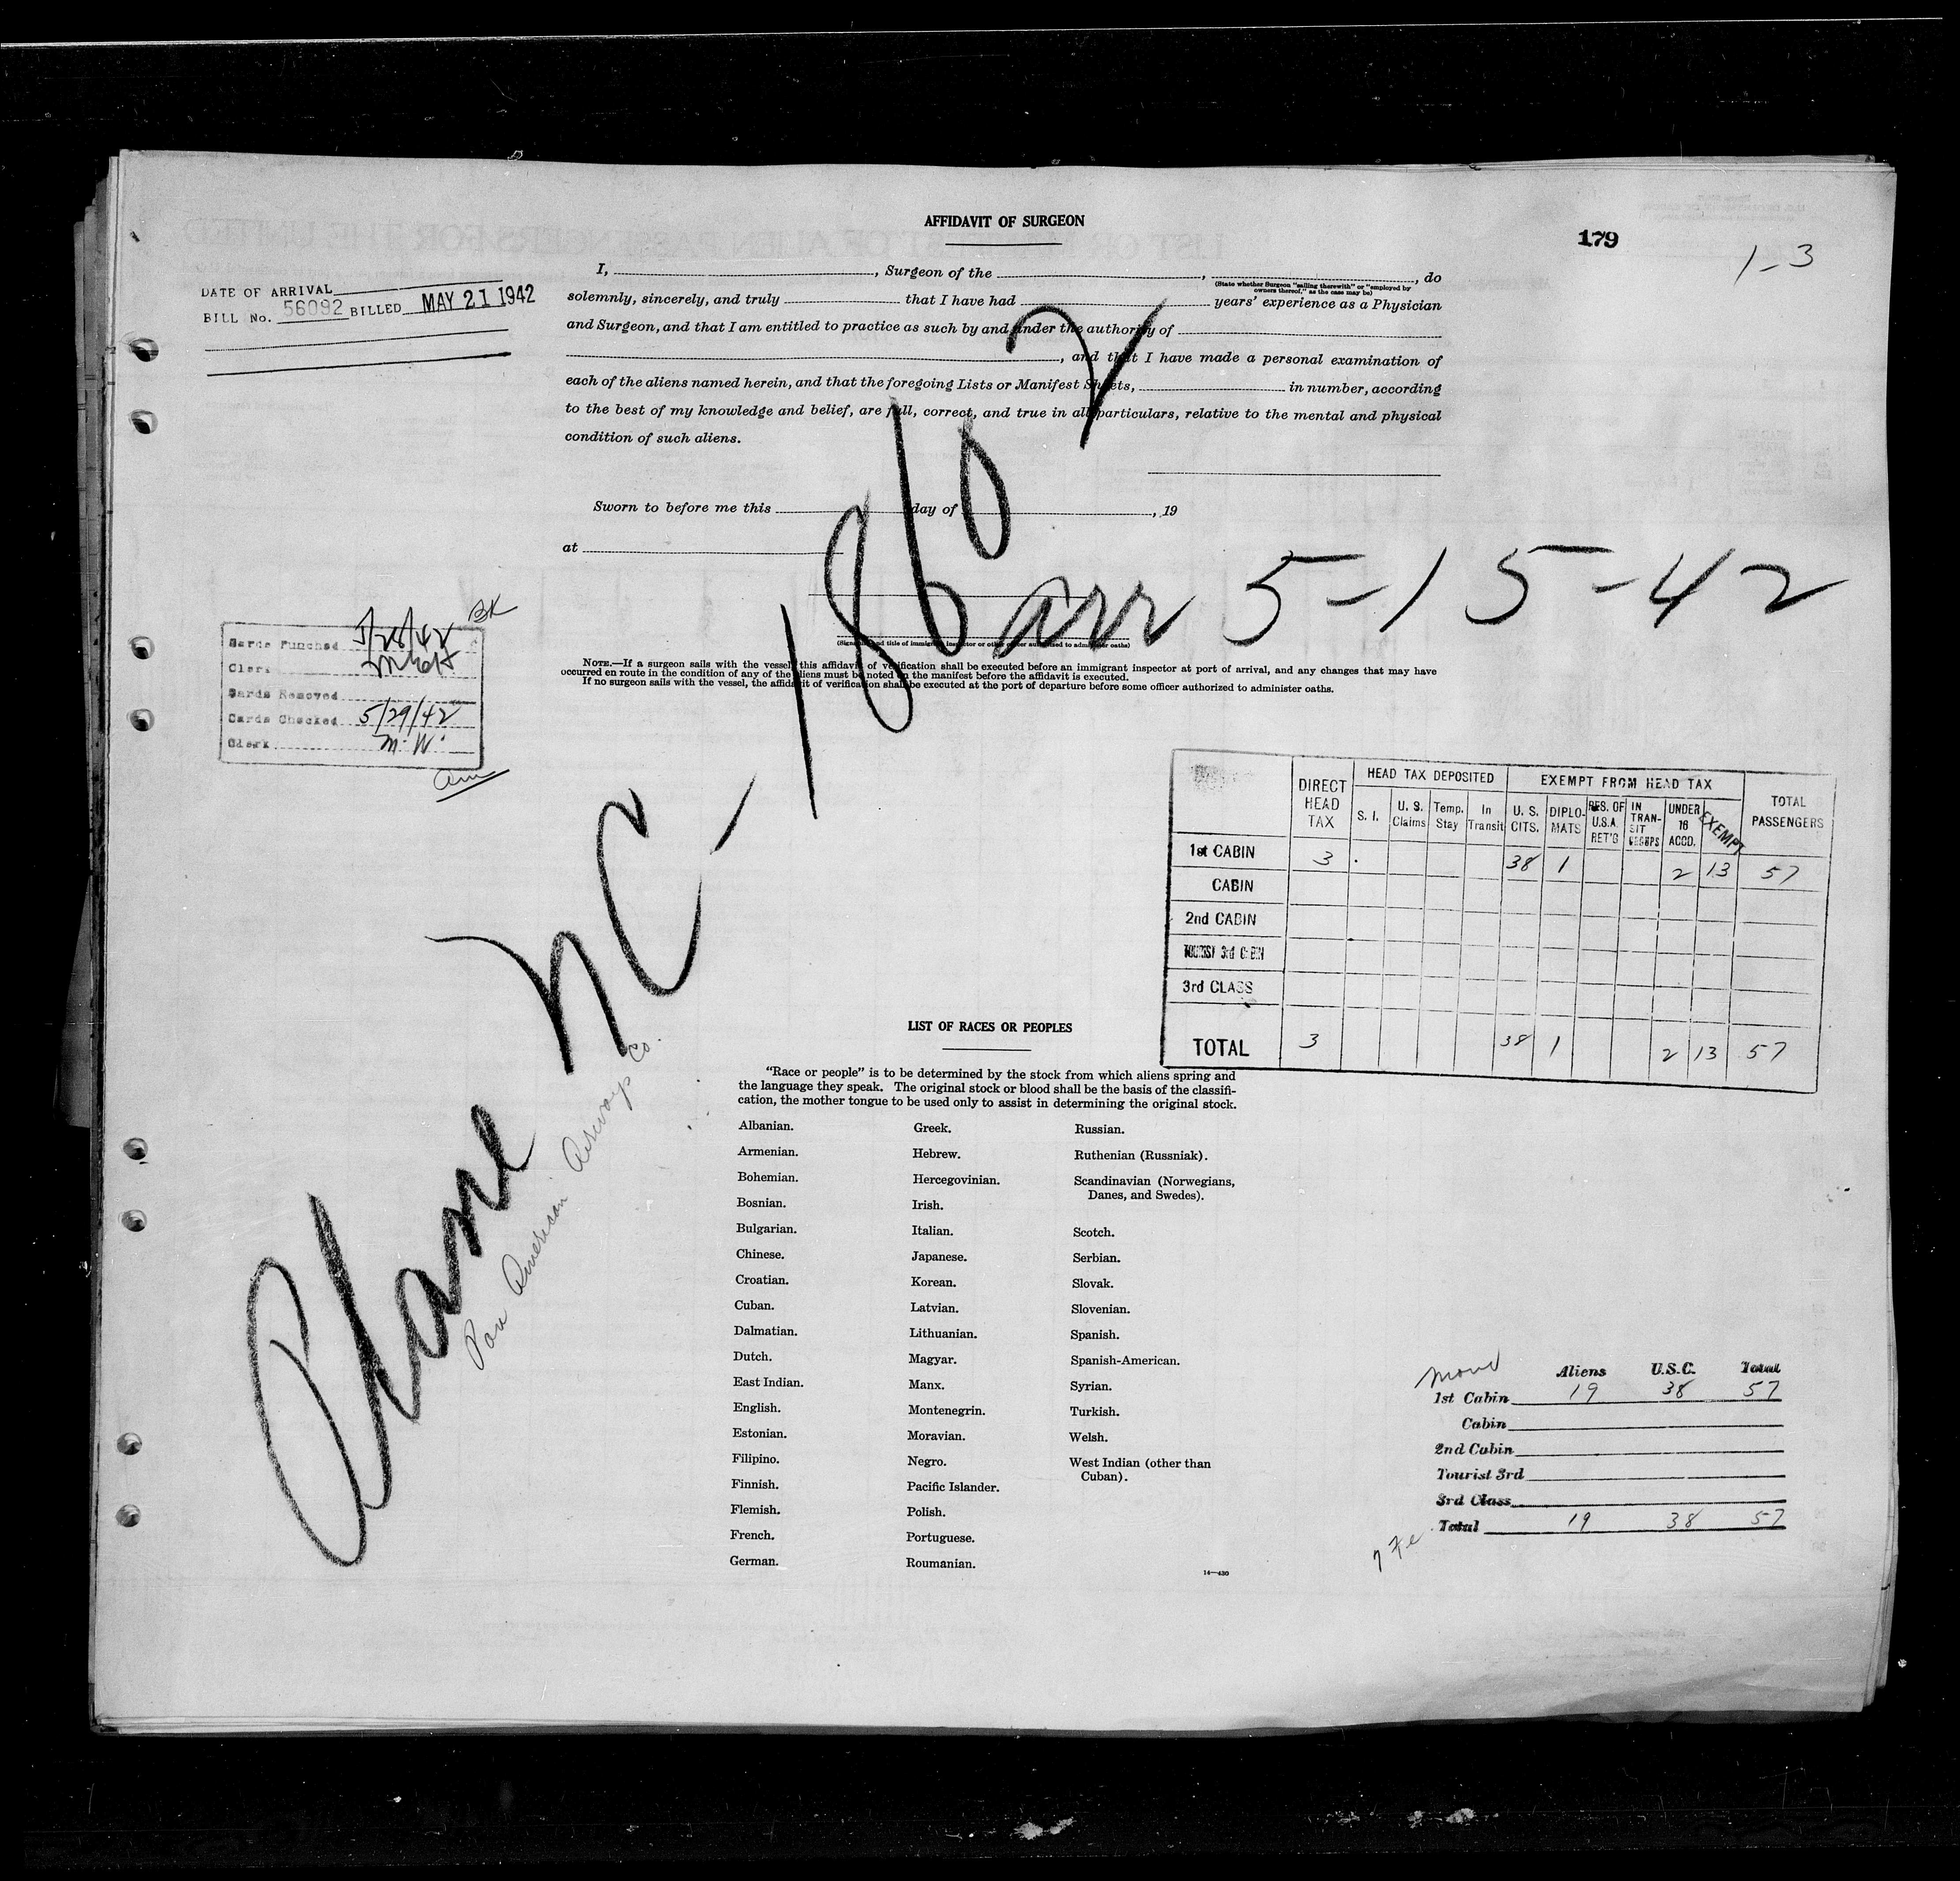 AFFIDAVIT OF SURGEON
179
1-3
DATE OF ARRIVAL
BILL No. 56092 BILLED MAY 21 1942
I, , Surgeon of the , , do
(State whether Surgeon "sailing therewith" or "employed by
owners thereof," as the case may be)
solemnly, sincerely, and truly that I have had years' experience as a Physician
and Surgeon, and that I am entitled to practice as such by and under the authority of
, and that I have made a personal examination of
each of the aliens named herein, and that the foregoing Lists or Manifest Sheets, in number, according
to the best of my knowledge and belief, are full, correct, and true in all particulars, relative to the mental and physical
condition of such aliens.
Sworn to before me this day of , 19
at
(Signature and title of immigrant inspector or other officer authorized to administer oaths)
NOTE.—If a surgeon sails with the vessel, this affidavit of verification shall be executed before an immigrant inspector at port of arrival, and any changes that may have
occurred en route in the condition of any of the aliens must be noted on the manifest before the affidavit is executed.
If no surgeon sails with the vessel, the affidavit of verification shall be executed at the port of departure before some officer authorized to administer oaths.
Plane NC-18602
arr 5-15-42
Pan American Airways Co.
BK
Cards Punched 5/28/42
Clerk
Cards Removed
Cards Checked 5/29/42
Clerk M.W.
DIRECT HEAD TAX
HEAD TAX DEPOSITED
EXEMPT FROM HEAD TAX
TOTAL PASSENGERS
S. I. U. S. Claims Temp. Stay In Transit U. S. CITS. DIPLO-MATS RES. OF U.S.A. RET'G IN TRAN-SIT UNDER 16 ACCD. EXEMPT
1st CABIN 3 38 1 2 13 57
CABIN
2nd CABIN
TOURIST 3rd CABIN
3rd CLASS
TOTAL 3 38 1 2 13 57
LIST OF RACES OR PEOPLES
"Race or people" is to be determined by the stock from which aliens spring and
the language they speak. The original stock or blood shall be the basis of the classifi-
cation, the mother tongue to be used only to assist in determining the original stock.
Albanian.
Armenian.
Bohemian.
Bosnian.
Bulgarian.
Chinese.
Croatian.
Cuban.
Dalmatian.
Dutch.
East Indian.
English.
Estonian.
Filipino.
Finnish.
Flemish.
French.
German.
Greek.
Hebrew.
Hercegovinian.
Irish.
Italian.
Japanese.
Korean.
Latvian.
Lithuanian.
Magyar.
Manx.
Montenegrin.
Moravian.
Negro.
Pacific Islander.
Polish.
Portuguese.
Roumanian.
Russian.
Ruthenian (Russniak).
Scandinavian (Norwegians,
Danes, and Swedes).
Scotch.
Serbian.
Slovak.
Slovenian.
Spanish.
Spanish-American.
Syrian.
Turkish.
Welsh.
West Indian (other than
Cuban).
14—430
Aliens U.S.C. Total
1st Cabin 19 38 57
Cabin
2nd Cabin
Tourist 3rd
3rd Class
Total 19 38 57